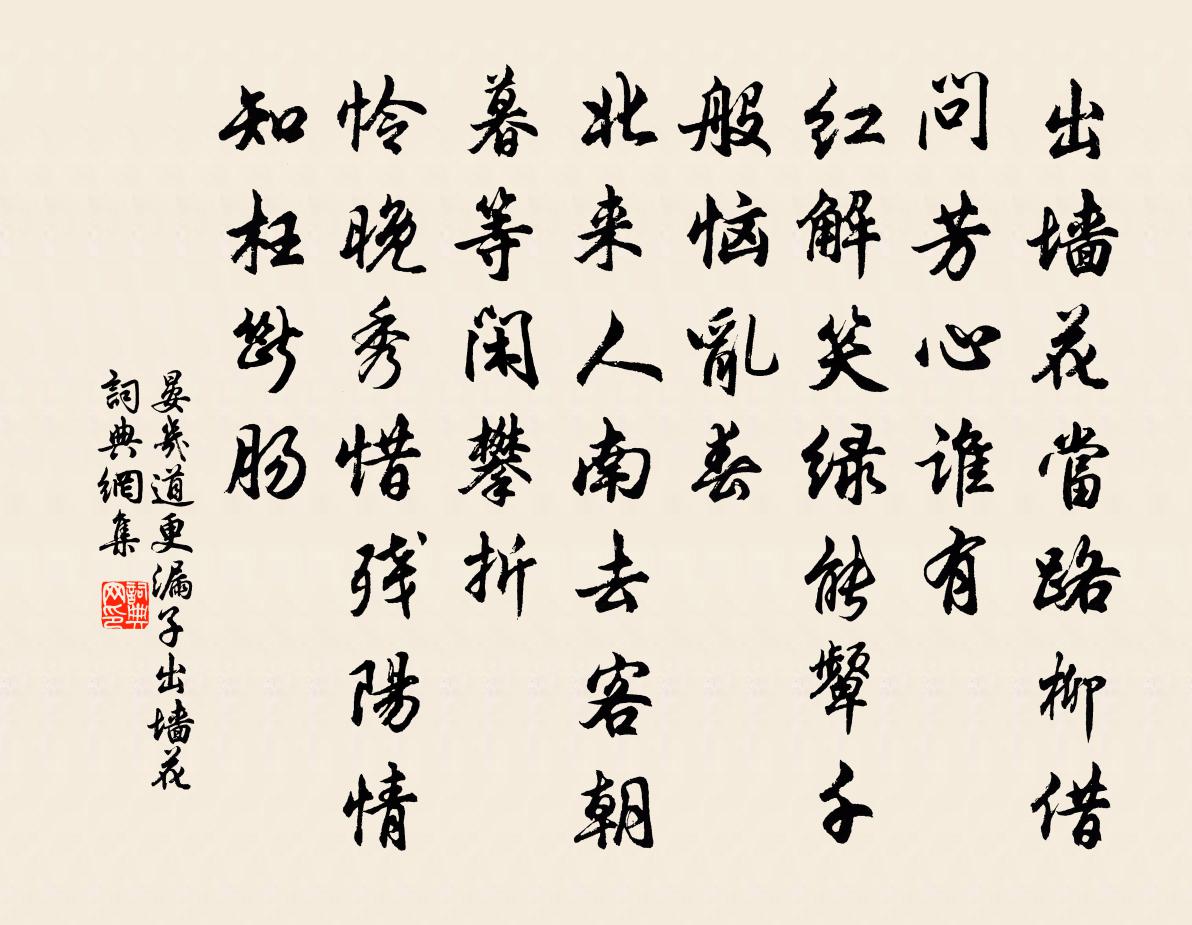 出墙花當路柳借
问芳心谁有
红解笑绿能颦千
般恼亂春
北来人南去客朝
暮等闲攀折
怜晚秀惜残陽情
知枉斷肠
晏幾道更漏子出墙花
詞典網集
詞典网印